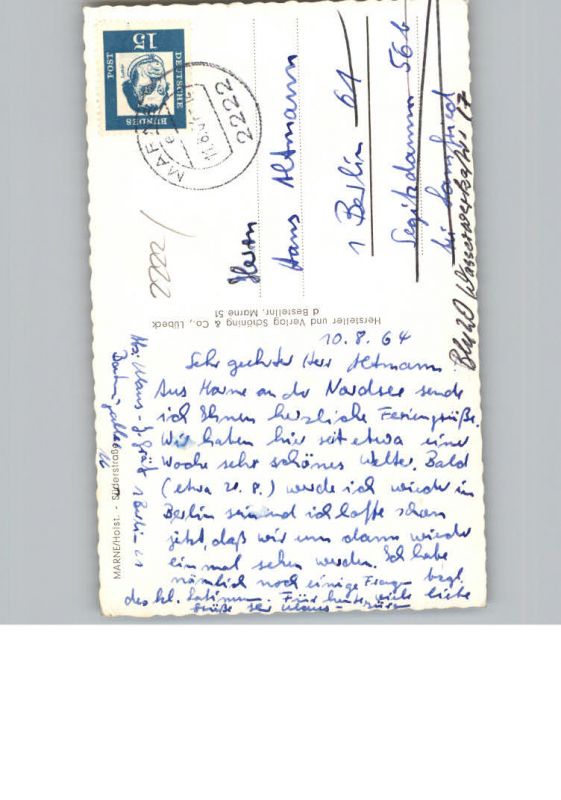 10.8.64
Sehr geehrter Herr Altmann
Aus Marne an der Nordsee sende
ich Ihnen herzliche Feriengrüße.
Wir haben hier seit etwa einer
Woche sehr schönes Wetter. Bald
(etwa 20. 8.) werde ich wieder in
Berlin sein und ich hoffe schon
jetzt, daß wir uns dann wieder
einmal sehen werden. Ich habe
nämlich noch einige Fragen bezgl.
des kl. Latinum. Für heute viele liebe
Grüße Ihr Klaus-Jürgen
1 Berlin 21
MARNE/Holst. - Süderstraße
Hersteller und Verlag Schöning & Co., Lübeck
d Bestellnr. Marne 51
Herrn
Hans Altmann
1 Berlin 61
Segitzdamm 56b
2222
DEUTSCHE
BUNDES
POST
15
2222